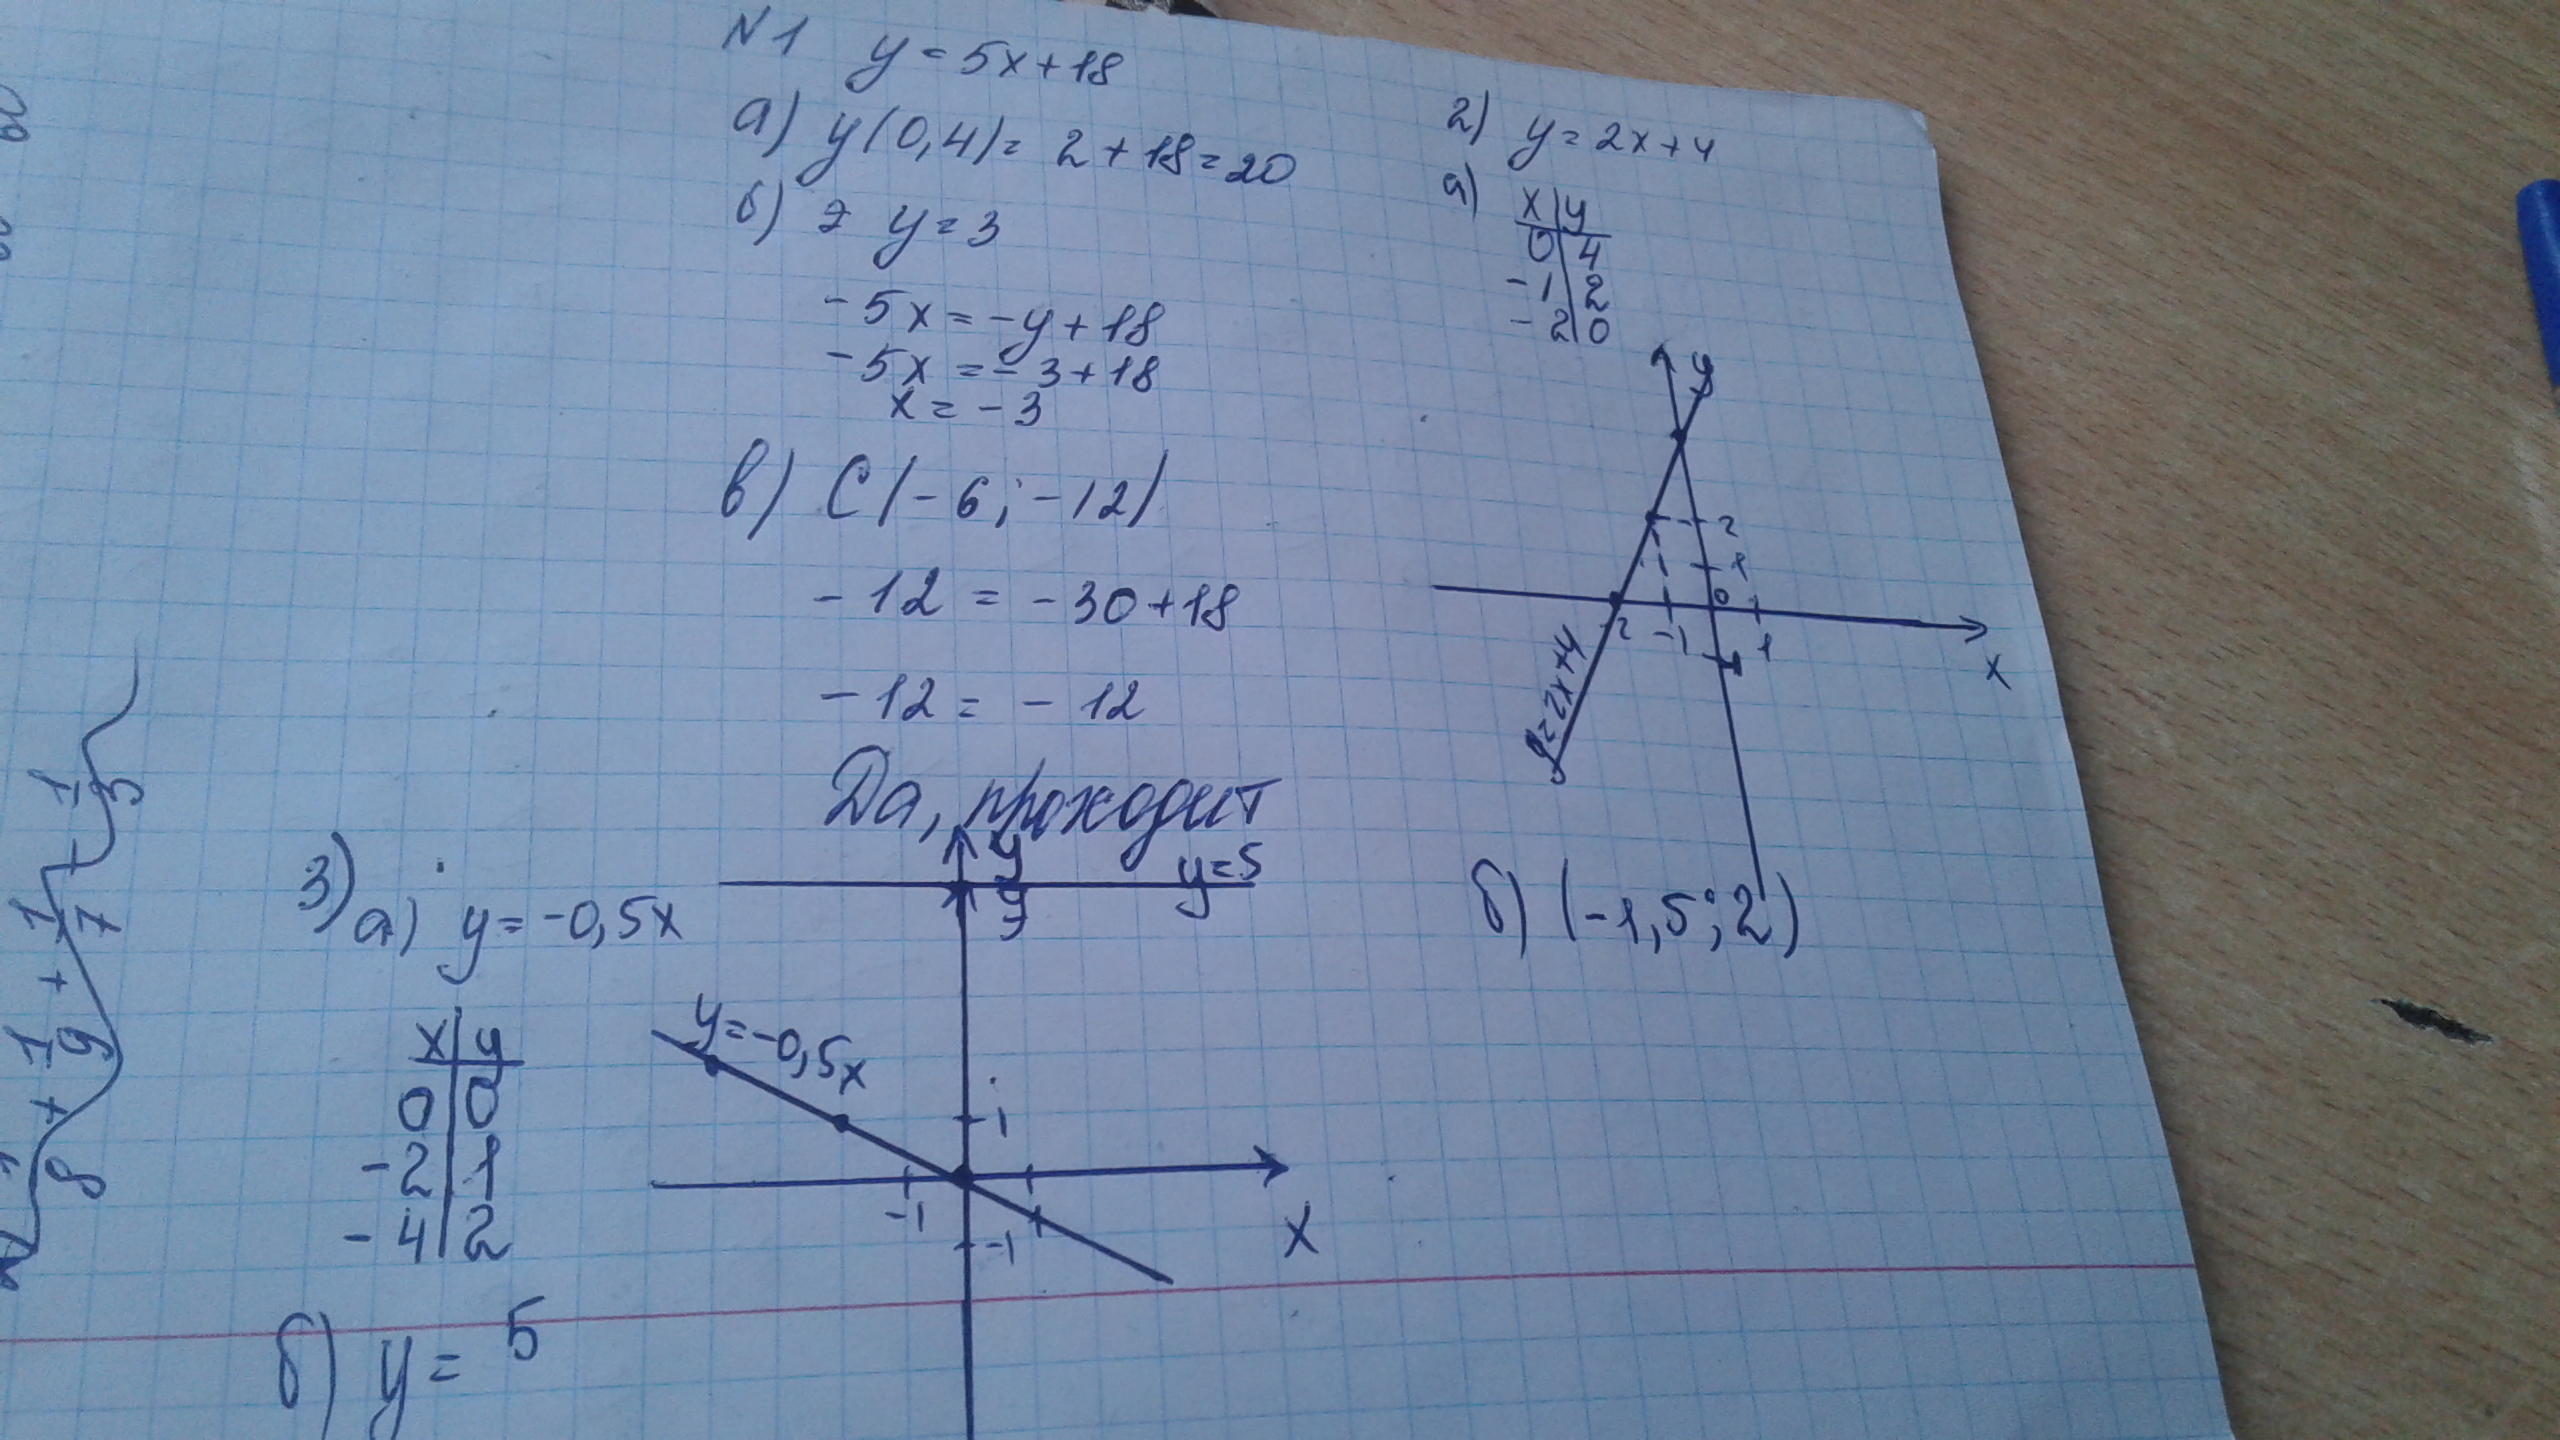 N1 y = 5x+18
а) y(0,4)= 2+18=20
б) y=3
-5x = -y+18
-5x = -3+18
x = -3
в) C(-6; -12)
-12 = -30+18
-12 = -12
Да, проходит
2) y = 2x+4
а)
x y
0 4
-1 2
-2 0
y
2
1
0
-2 -1 1
x
y=2x+4
б) (-1,5; 2)
3) а) y = -0,5x
x y
0 0
-2 1
-4 2
y
y=5
y
y=-0,5x
1
-1
-1
x
б) y = 5
8 + 1/9 + 1/7 + 1/5